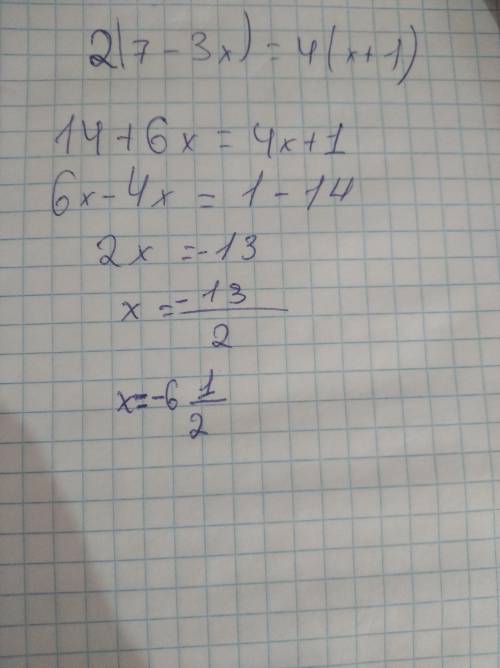 2(7 - 3x) = 4(x + 1)
14 + 6x = 4x + 1
6x - 4x = 1 - 14
2x = -13
x = -13/2
x = -6 1/2